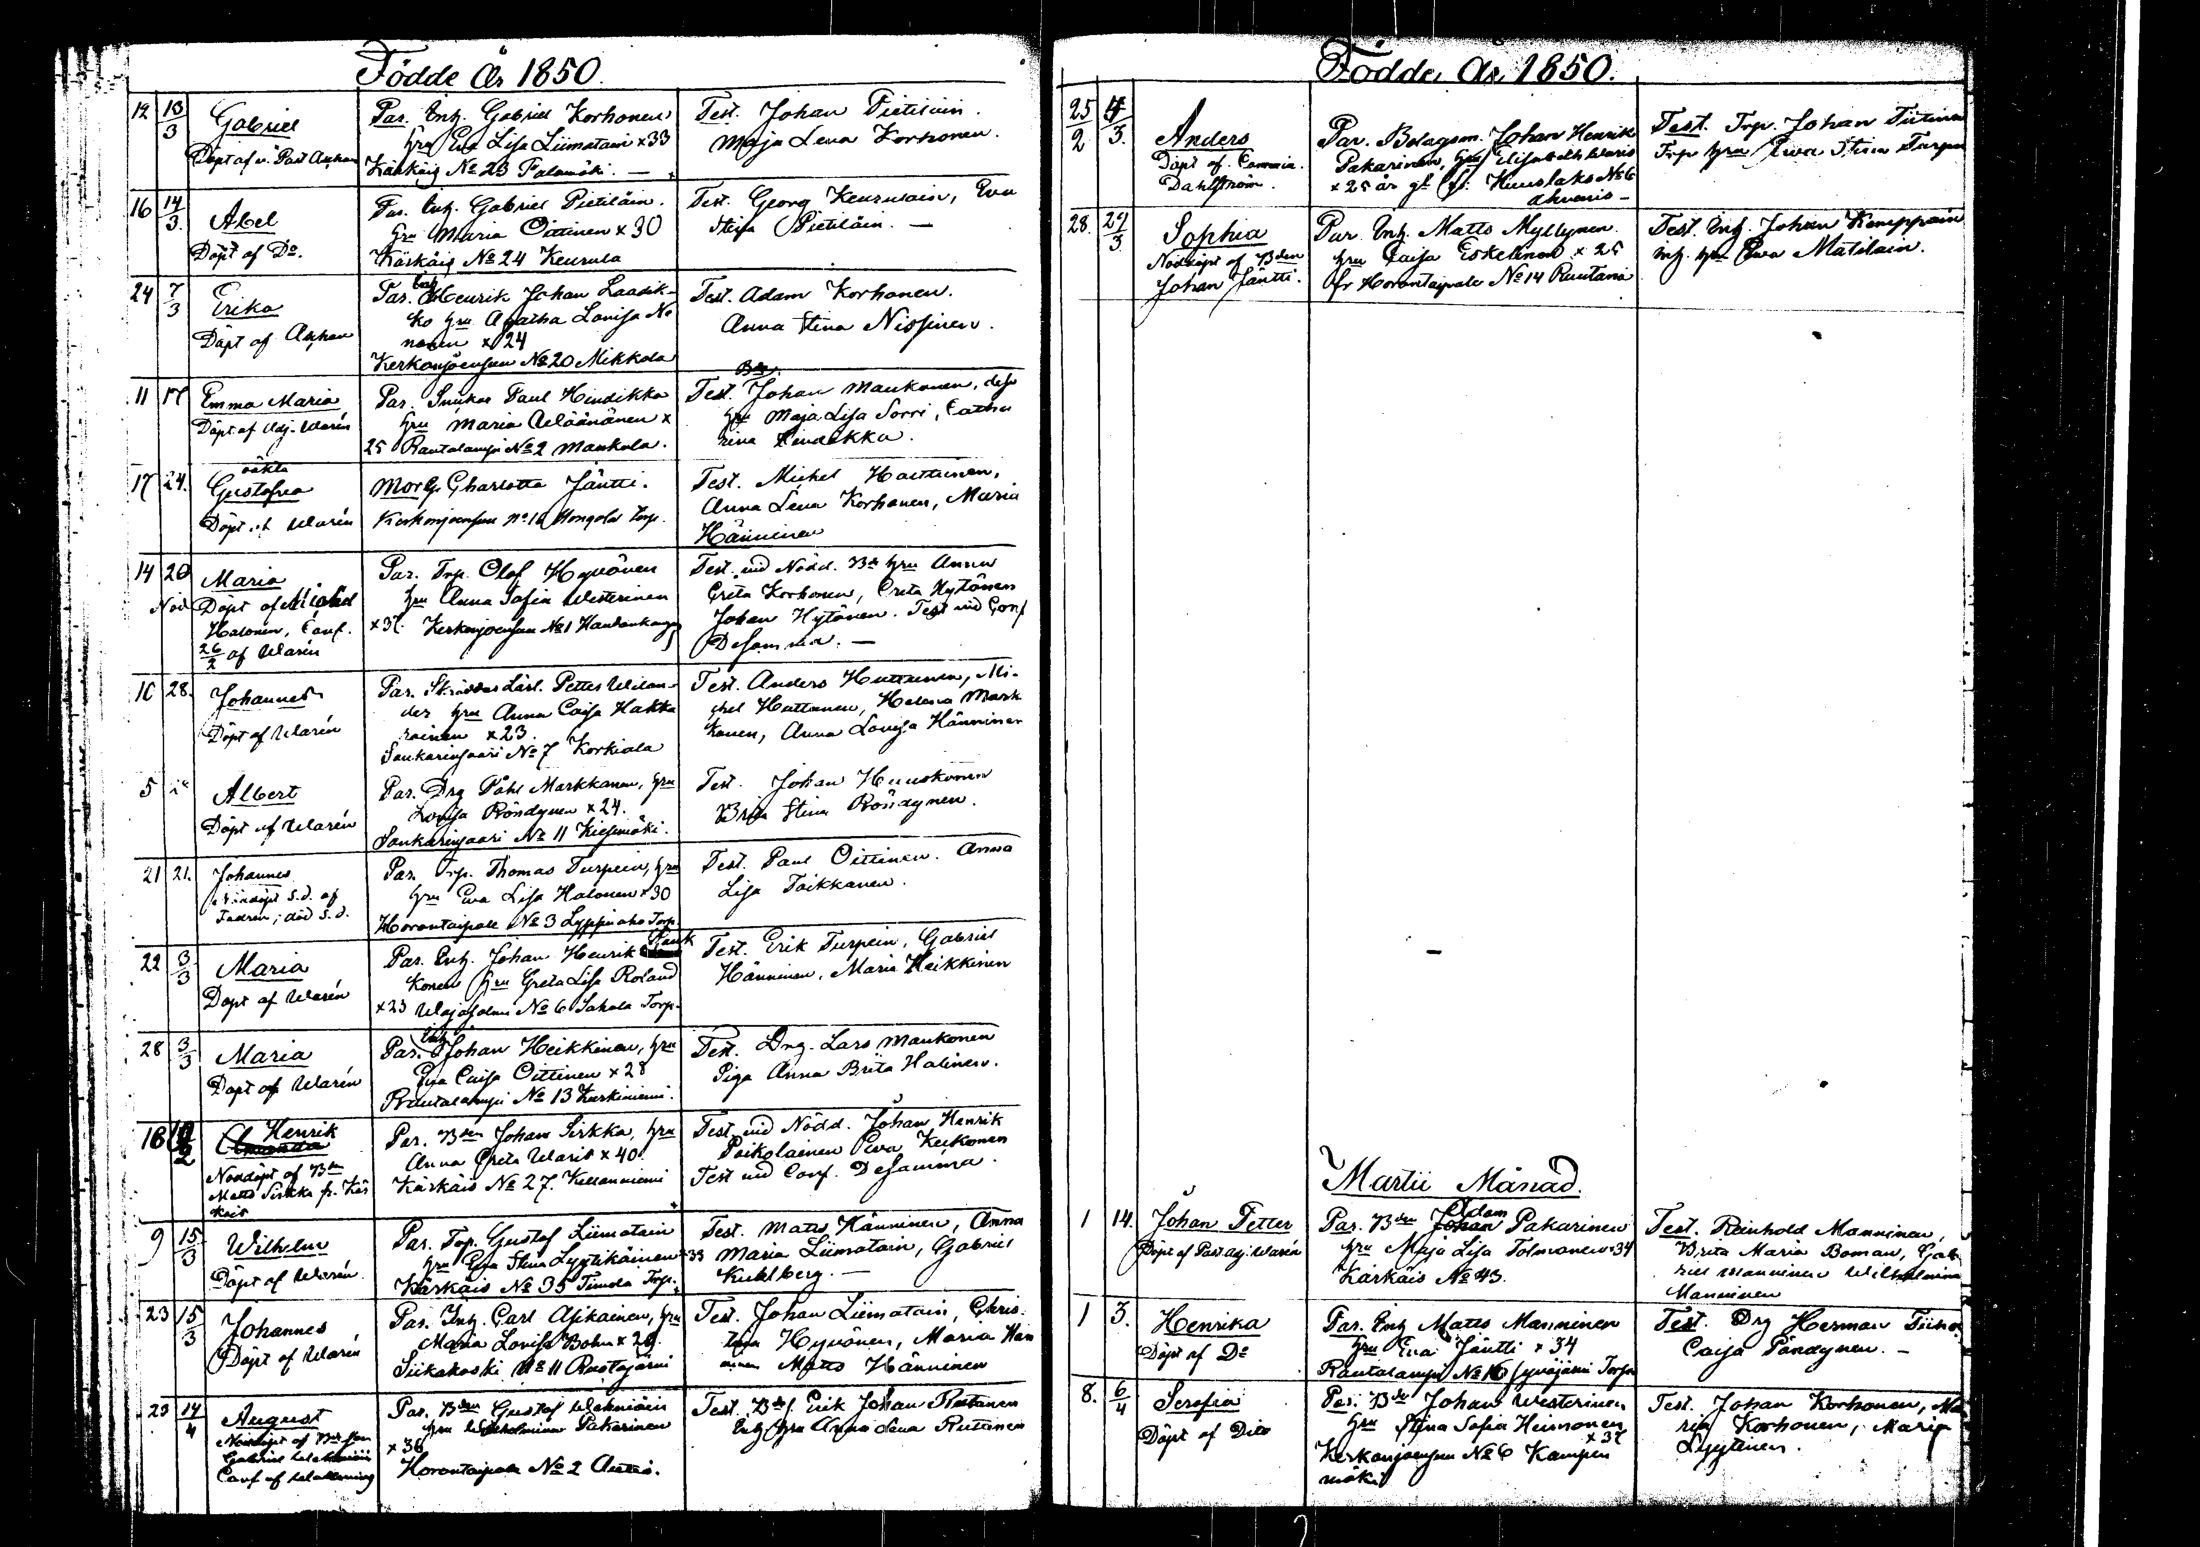 Födde År 1850.
12 13/3 Gabriel
Döpt af v. Past.
Par. Inh. Gabriel Korhonen
hru Eva Lisa Liimatain x 33
Kärkäis No 23 Palomäki. —
Test. Johan Pietiläin.
Maja Lena Korhonen.
16 14/3. Abel
Döpt af Do.
Par. Inh. Gabriel Pietiläin.
hru Maria Oittinen x 30
Kärkäis No 24 Keurula
Test. Georg Keurulain, Eva
Stina Pietiläin. —
24 7/3 Erika
Döpt af
Par. Inh. Henrik Johan Laadik-
ko hru Agatha Lovisa No
nanen x 24
Kerkonjoensuu No 20 Mikkola
Test. Adam Korhonen.
Anna Stina Nissinen.
11 17 Emma Maria
Döpt af Adj. Warén
Par. Snickar Paul Hindikka
hru Maria Wäänänen x
25 Rautalampi No 2 Maukola.
Test. Johan Maukonen, dess
hru Maja Lisa Sorri, Catha
rina Hindikka.
17 24. oäkta
Gustafva
Döpt af Warén
Mor Charlotta Jäntti.
Kerkonjoensuu No 10 Hongola Torp.
Test. Michel Hattunen,
Anna Lena Korhonen, Maria
Hänninen
14 20 Maria
Nöd Döpt af Michel
Halonen, Conf.
26/2 af Warén
Par. Trp. Olof Hyvönen
hru Anna Sofia Westerinen
x 37. Kerkonjoensuu No 1 Handankangas
Test. vid Nödd. Bd. hru Anna
Greta Korhonen, Greta Hytönen
Johan Hytönen. Test vid Conf
Desamma. —
10 28. Johannes
Döpt af Warén
Par. Skräddar Lärl. Petter Welan-
der hru Anna Caisa Hakka
rainen x 23.
Sonkarinsaari No 7 Korkiala
Test. Anders Huttunen, Mi-
chel Huttunen, Helena Mark
kanen, Anna Lovisa Hänninen
5 Albert
Döpt af Warén
Par. Drg Påhl Markkanen, hru
Lovisa Pöndynen x 24.
Sonkarinsaari No 11 Kiesimäki.
Test. Johan Huuskonen
Brita Stina Pöndynen.
21 21. Johannes
Nöddöpt s.d. af
Fadren; död s.d.
Par. Trp. Thomas Turpein, hru
hru Eva Lisa Halonen x 30
Horontaipale No 3 Lyppinaho Torp.
Test. Paul Oittinen. Anna
Lisa Toikkanen.
22 3/3 Maria
Döpt af Warén
Par. Inh. Johan Henrik Hauk
konen hru Greta Lisa Roland
x 23 Wajasalmi No 6 Sahala Torp.
Test. Erik Turpein, Gabriel
Hänninen, Maria Heikkinen
28 3/3 Maria
Döpt af Warén
Par. Inh Johan Heikkinen, hru
Eva Caisa Oittinen x 28
Rautalampi No 13 Kärkiniemi.
Test. Drg. Lars Maukonen
Piga Anna Brita Halinen.
18 Henrik
Nöddöpt af Bdn
Matts Sirkka fr. Kär
käis
Par. Bden Johan Sirkka, hru
Anna Greta Waris x 40.
Kärkäis No 27.
Test. vid Nödd. Johan Henrik
Poikolainen Eva Keikonen
Test vid Conf. Desamma.
9 15/3 Wilhelm
Döpt af Warén.
Par. Trp. Gustaf Liimatain
hru Eva Stina Lyytikäinen x 33
Kärkäis No 35 Timola Torp.
Test. Matts Hänninen, Anna
Maria Liimatain, Gabriel
Kuhlberg. —
23 15/3 Johannes
Döpt af Warén
Par. Inh. Carl Asikainen, hru
Maria Lovisa Bohm x 28.
Siikakoski No 11 Rastojärvi
Test. Johan Liimatain, Chris-
tina Hyvönen, Maria Hän
ninen Matts Hänninen
23 14/4 August
Nöddöpt af
Gabriel
Conf. af
Par. Bden Gustaf
hru Wilhelmina Pakarinen
x 36
Horontaipale No 2 Autio.
Test. Erik Johan Rutanen
Inh hru Anna Lena Rutanen
Födde År 1850.
25/2 4/3. Anders
Döpt af Commin.
Dahlström.
Par. Bolagsm. Johan Henrik
Pakarinen, hru Elisabeth Waris
x 25 år gl. fr. Kuuslaks No 6
Ahvenis —
Test. Trp. Johan Tiitinen
Trp hru Ewa Stina Turpen
28. 29/3 Sophia
Nöddöpt af Bden
Johan Jäntti.
Par. Inh. Matts Myllynen.
hru Caisa Eskelinen x 25
fr Horontaipale No 14 Ruutana
Test. Inh. Johan Kemppain
inh. hru Ewa Matilain.
Martii Månad.
1 14. Johan Petter
Döpt af Past. adj. Warén
Par. Bden Adam Pakarinen
hru Maja Lisa Tolmanen x 34
Kärkäis No 43.
Test. Reinhold Manninen,
Brita Maria Boman, Gab-
riel Manninen Wilhelmina
Manninen
1 3. Henrika
Döpt af Do
Par. Inh Matts Manninen
hru Eva Jäntti x 34
Rautalampi No 16 Syväjärvi Torp
Test. Drg Herman Tiiho
Caisa Pöndynen. —
8. 6/4 Serafia
Döpt af Dito
Par. Bdn Johan Westerinen
hru Stina Sofia Heimonen
x 37
Kerkonjoensuu No 6 Kampin
mäki
Test. Johan Korhonen, Ma
ria Korhonen, Maria
Lyytinen.